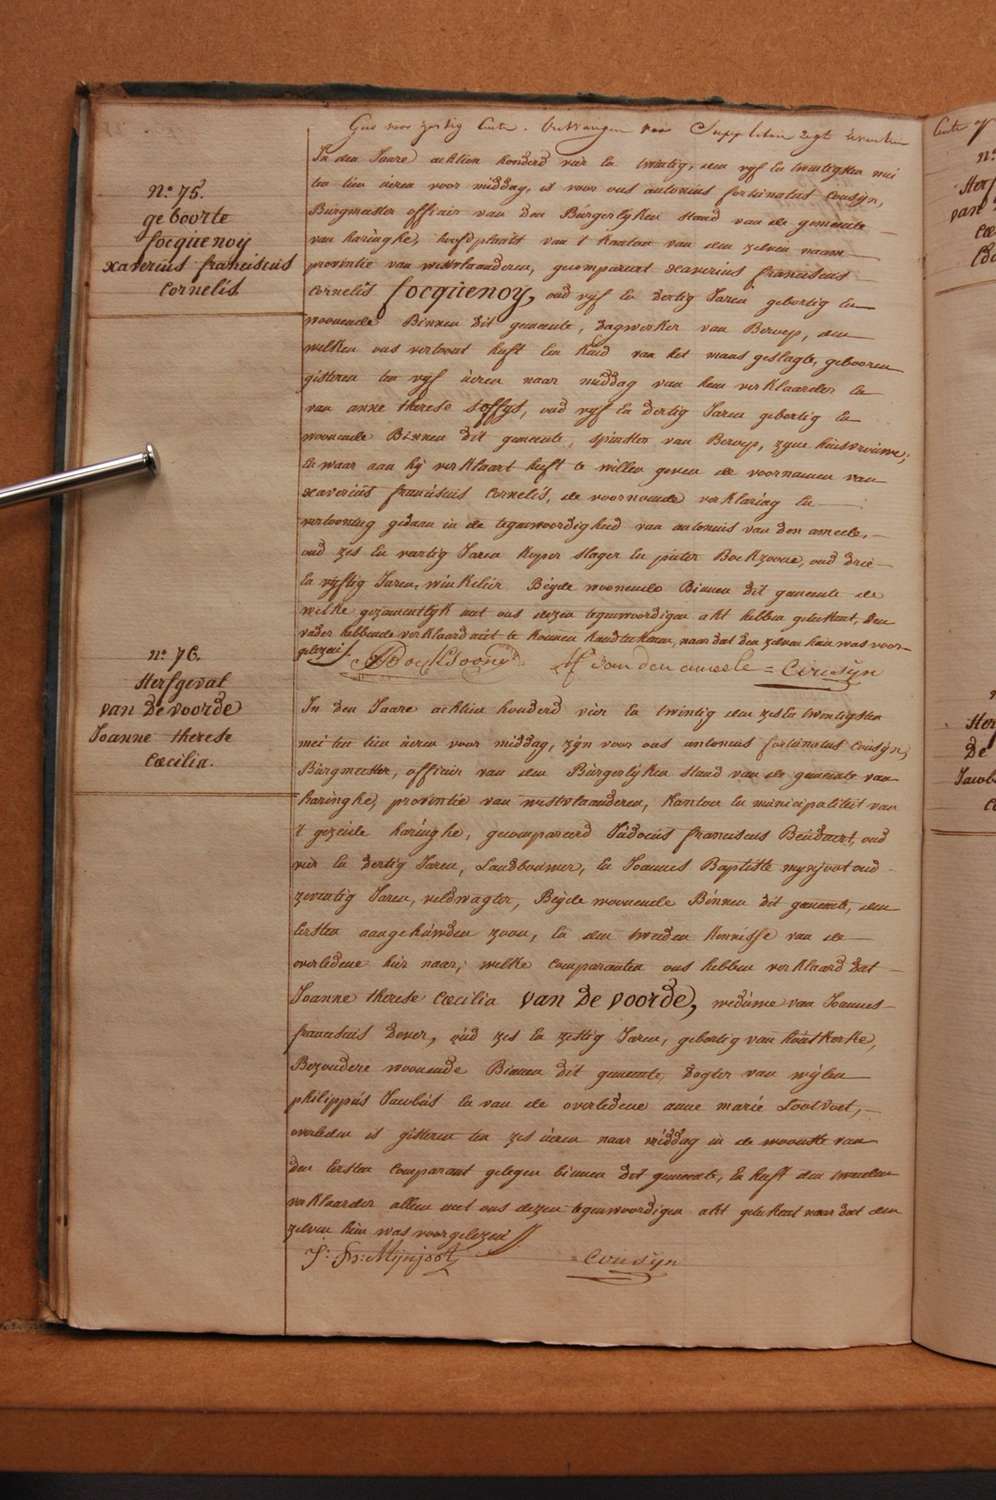 N.º 75.
geboorte
focquenoy
xaverius franciscus
Cornelis.
In den Jaare achtien honderd vier en twintig, den vyf en twintigsten mei
ten tien uren voor middag, is voor ons antonius fortunatus Cousyn,
Burgmeester officier van den Burgerlyken stand van de gemeente
van haringhe, hoofdplaats van 't kanton van den zelven naam
provintie van westvlaanderen, gecompareert xaverius franciscus
Cornelis focquenoy, oud vyf en dertig Jaren geboortig en
woonende Binnen dit gemeente, dagwerker van Beroep, den
welken ons vertoont heeft een kind van het mans geslagte, gebooren
gisteren ten vyf uren naar middag van hem verklaarder en
van anne therese soffys, oud vyf en dertig Jaren gebortig en
woonende Binnen dit gemeente, spinster van Beroep, zyne huisvrouwe;
en waar aan hy verklaart heeft te willen geven de voornamen van
xaverius franciscus Cornelis, de voornoemde verklaring en
vertooning gedaan in de tegenwoordigheid van antonius van den ameele,
oud zes en vartig Jaren koper slager en pieter Bockzoone, oud drie
en vyftig Jaren, winkelier Beyde woonende Binnen dit gemeente de
welke gezamentlyk met ons dezen tegenwoordigen akt hebben geteekent, den
vader hebbende verklaard niet te konnen handteekenen, naar dat den zelven hun was voor-
gelezen
Bocksoone A f van den ameele = Cousyn
N.º 76.
Sterfgeval
van De voorde
Joanne therese
Cæcilia.
In den Jaare achtien honderd vier en twintig den zes en twintigsten
mei ten tien uren voor middag, zyn voor ons antonius fortunatus Cousyn,
Burgmeester, officier van den Burgerlyken stand van de gemeente van
haringhe, provintie van westvlaanderen, kanton en municipaliteit van
't gezeide haringhe, gecompareerd Judocus franciscus Beudaert, oud
vier en dertig Jaren, Landbouwer, en Joannes Baptiste mynjoot oud
zeventig Jaren, veldwagter, Beyde woonende Binnen dit gemeente, den
eersten aangehuwden zoon, en den tweeden kennisse van de
overledene hier naar, welke comparanten ons hebben verklaard dat
Joanne therese Cæcilia van De voorde, weduwe van Joannes
franciscus Dever, oud zes en zestig Jaren, gebortig van houtkerke,
Bezondere woonende Binnen dit gemeente, dogter van wylen
philippus Jacobus en van de overledene anne marie Lootvoet,
overleden is gisteren ten zes uren naar middag in de woonste van
den Eersten Comparant gelegen binnen dit gemeente, en heeft den tweeden
verklaarder alleen met ons dezen tegenwoordigen akt geteekent naar dat den
zelven hun was voorgelezen
J: B: Mynjoot = Cousyn